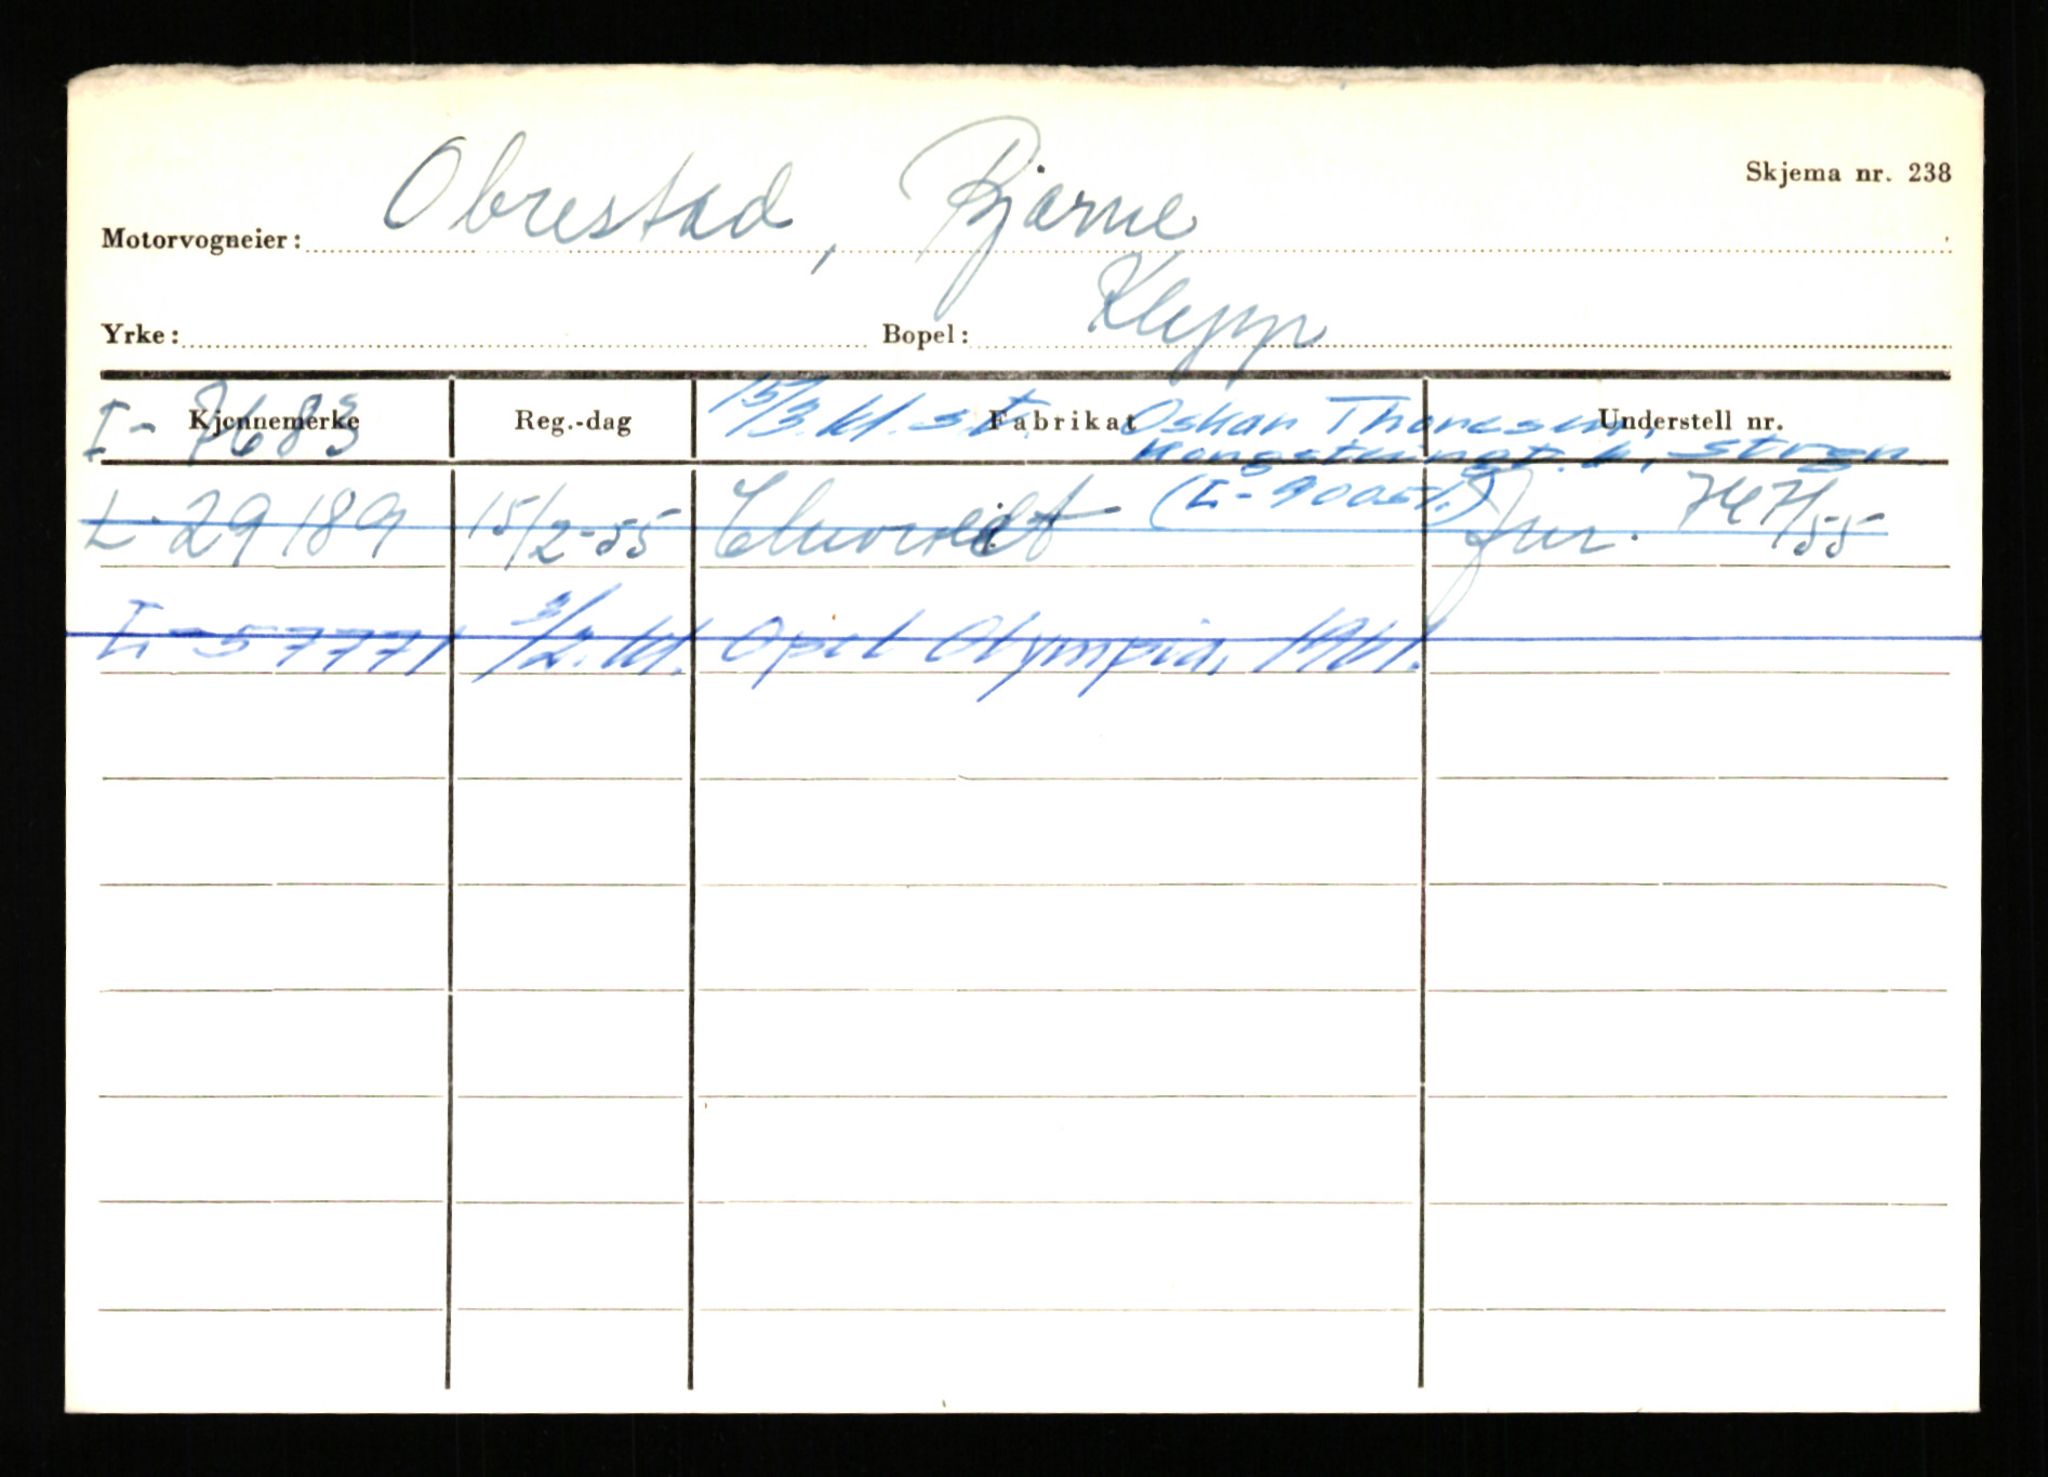 Skjema nr. 238
Motorvogneier: Obrestad, Bjarne
Yrke: Bopel: Klepp
Kjennemerke Reg.-dag Fabrikat Understell nr.
I - 7683 15/3.61. s.t. Oskar Thoresen,
L 29189 15/2-55 Chevrolet Jnr. 747/55
L - 57771 3/2.61. Opel Olympia, 1961.